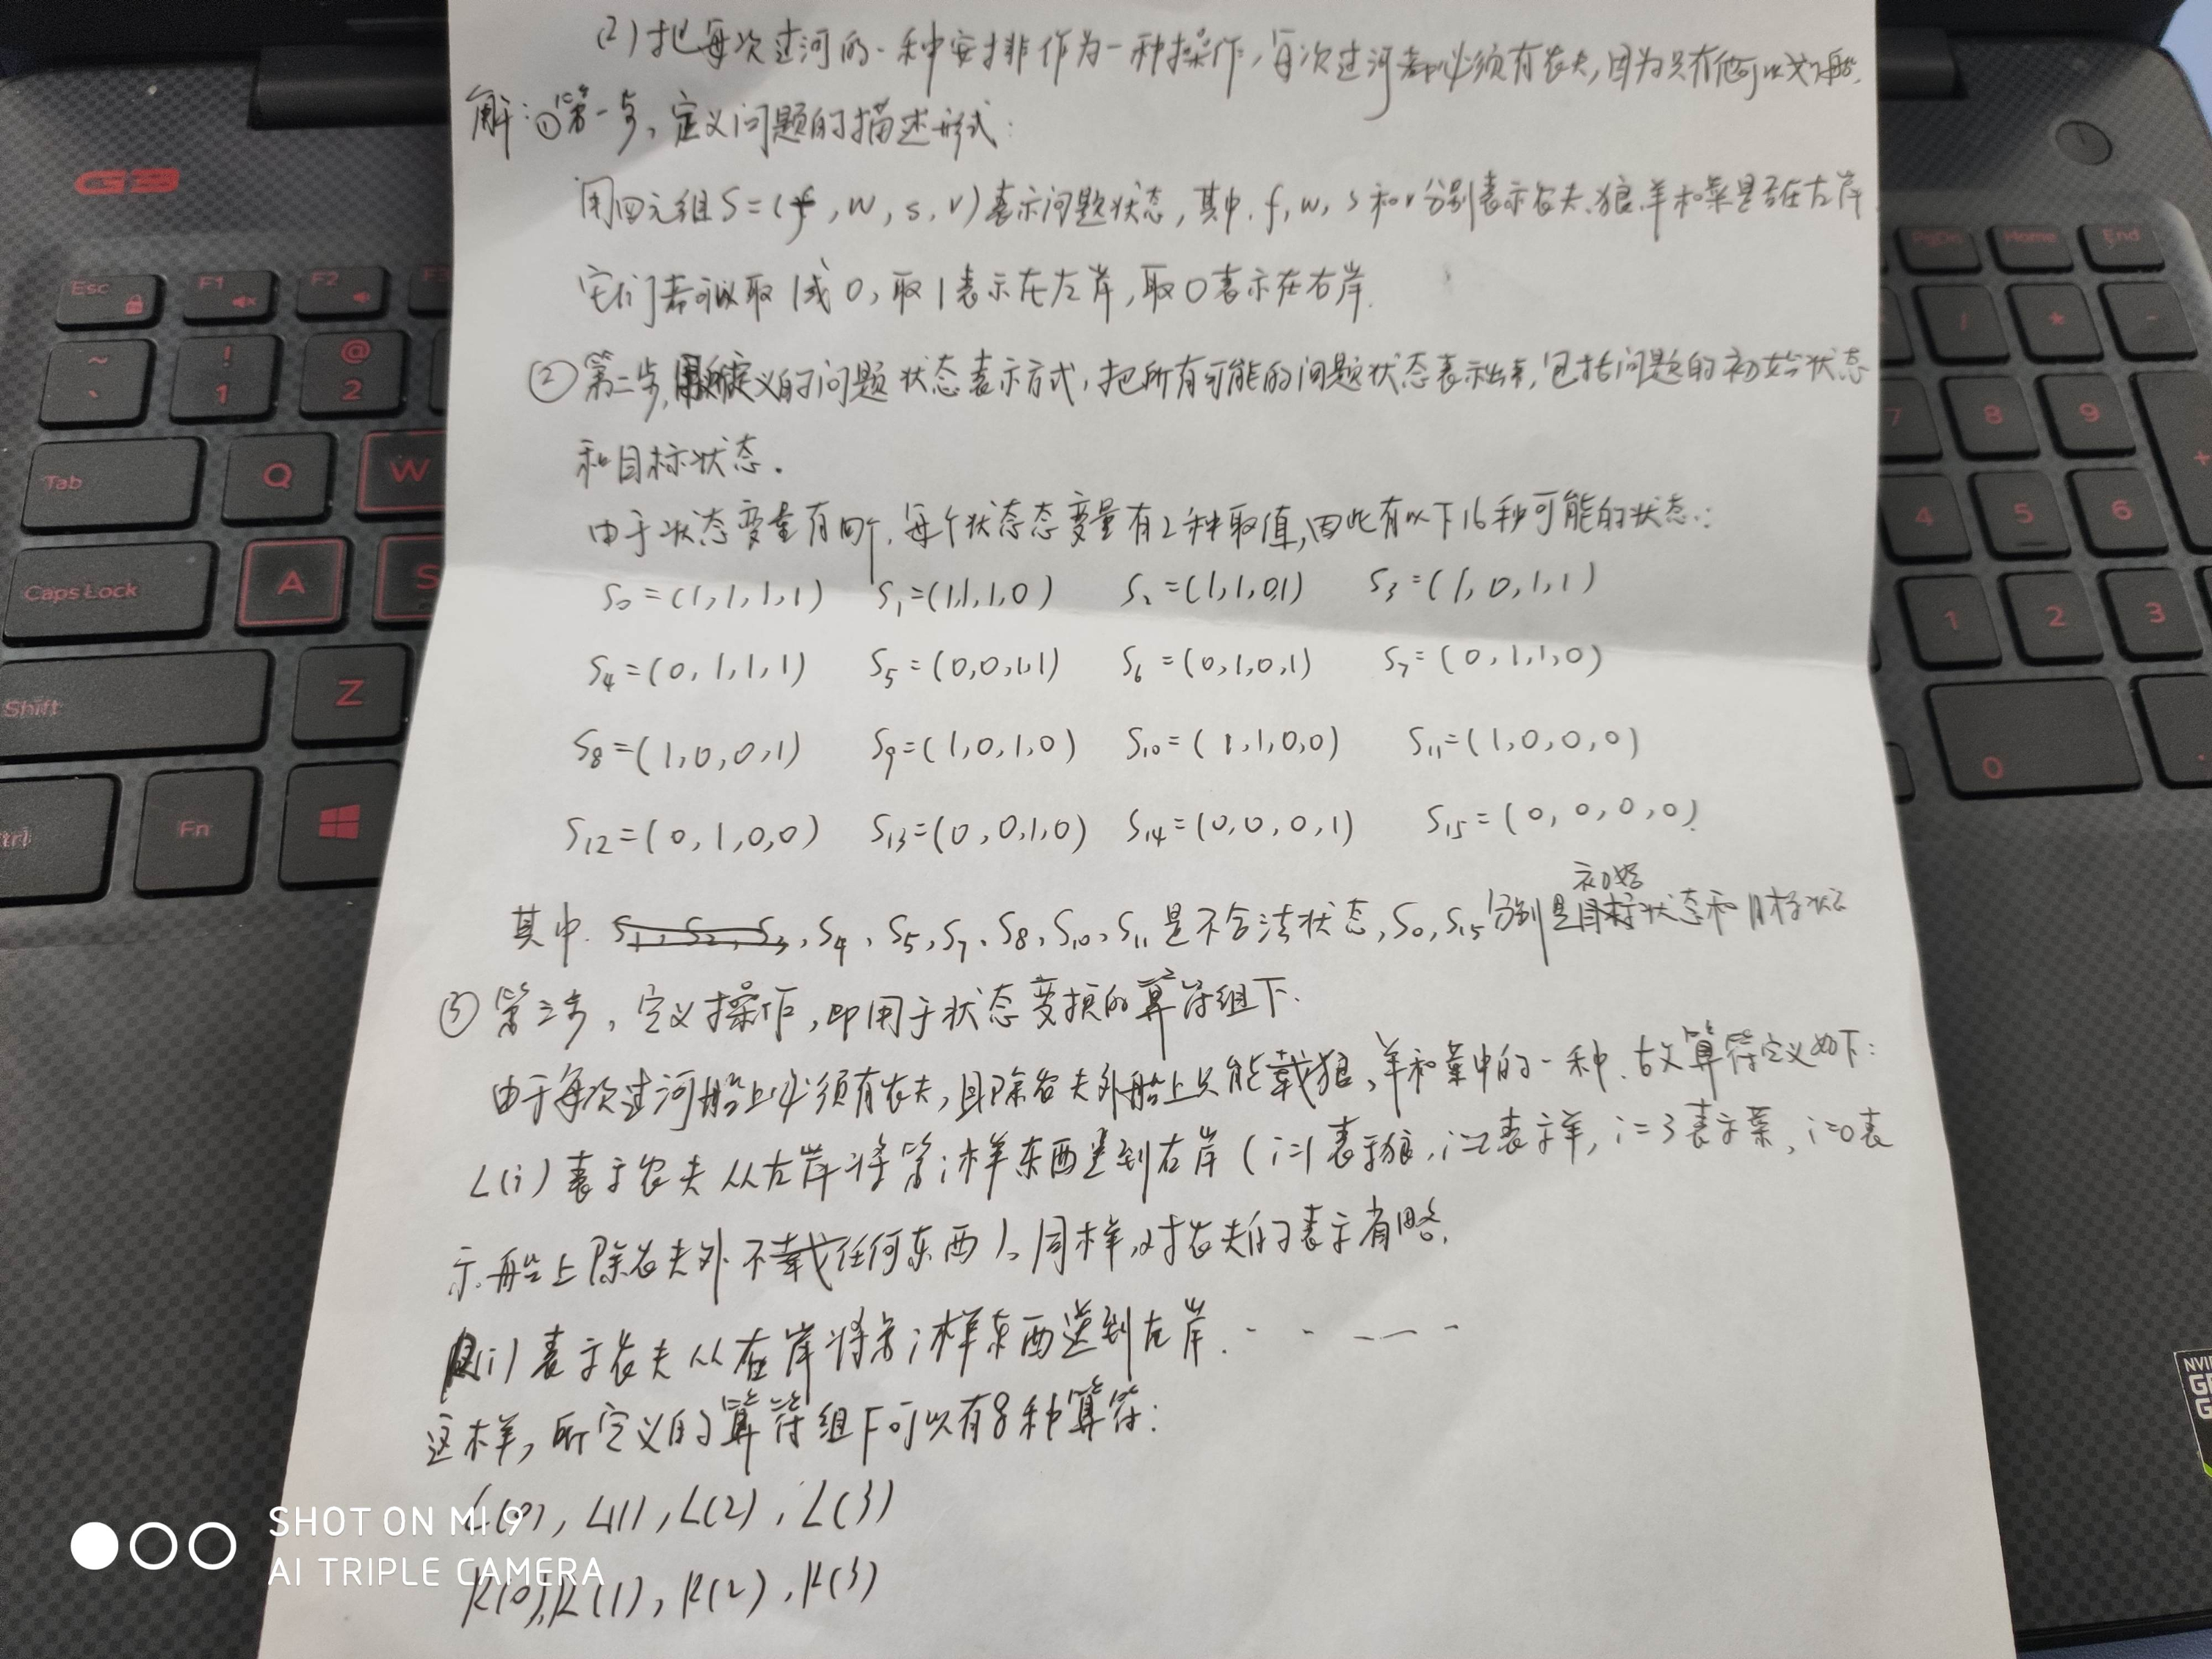 (2)把每次过河的一种安排作为一种操作,每次过河都必须有农夫,因为只有他可以划船.
解:①第一步,定义问题的描述形式:
用四元组S=(f,w,s,v)表示问题状态,其中.f,w,s和v分别表示农夫、狼、羊和菜是否在左岸
它们都可以取1或0,取1表示在左岸,取0表示在右岸.
②第二步,用所定义的问题状态表示方式,把所有可能的问题状态表示出来,包括问题的初始状态
和目标状态.
由于状态变量有四个,每个状态态变量有2种取值,因此有以下16种可能的状态:
S0=(1,1,1,1) S1=(1,1,1,0) S2=(1,1,0,1) S3=(1,0,1,1)
S4=(0,1,1,1) S5=(0,0,1,1) S6=(0,1,0,1) S7=(0,1,1,0)
S8=(1,0,0,1) S9=(1,0,1,0) S10=(1,1,0,0) S11=(1,0,0,0)
S12=(0,1,0,0) S13=(0,0,1,0) S14=(0,0,0,1) S15=(0,0,0,0)
其中.S1,S2,S3,S4、S5,S7、S8、S10、S11是不合法状态,S0,S15分别是初始状态和目标状态
③第三步,定义操作,即用于状态变换的算符组下.
由于每次过河船上必须有农夫,且除农夫外船上只能载狼、羊和菜中的一种.故算符定义如下:
L(i)表示农夫从左岸将第i样东西送到右岸(i=1表示狼,i=2表示羊,i=3表示菜,i=0表
示船上除农夫外不载任何东西).同样,对农夫的表示省略.
R(i)表示农夫从右岸将第i样东西送到左岸.
这样,所定义的算符组F可以有8种算符:
L(0),L(1),L(2),L(3)
R(0),R(1),R(2),R(3)
SHOT ON MI 9
AI TRIPLE CAMERA
G3
Esc
F1
F2
F3
PgDn
Home
End
~
`
!
1
@
2
Tab
Q
W
Caps Lock
A
S
Shift
Z
Fn
7
8
9
4
5
6
1
2
3
0
/
*
-
+